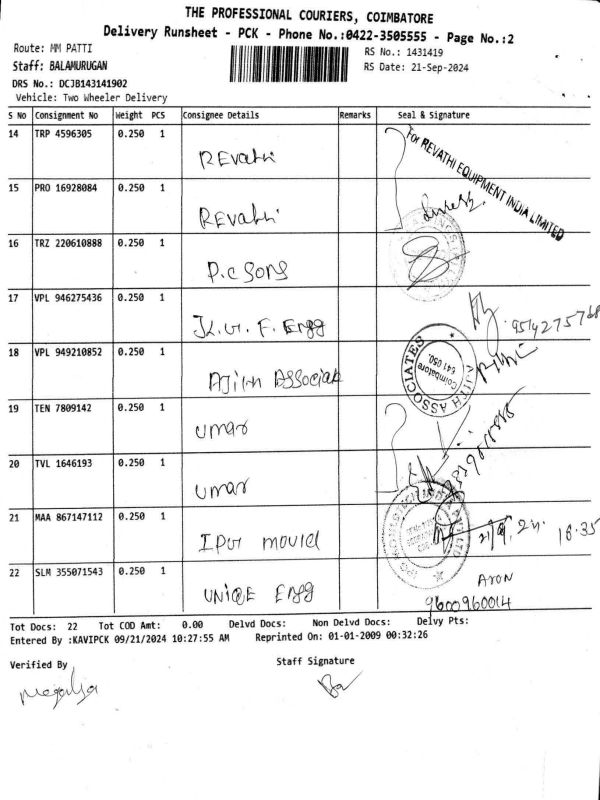 THE PROFESSIONAL COURIERS, COIMBATORE
Delivery Runsheet - PCK - Phone No.:0422-3505555 - Page No.:2
Route: MM PATTI
RS No.: 1431419
Staff: BALAMURUGAN
RS Date: 21-Sep-2024
DRS No.: DCJB143141902
Vehicle: Two Wheeler Delivery
S No Consignment No Weight PCS Consignee Details Remarks Seal & Signature
14 TRP 4596305 0.250 1 REvathi
For REVATHI EQUIPMENT INDIA LIMITED
15 PRO 16928084 0.250 1 REvathi
16 TRZ 220610888 0.250 1 P.C Sons
17 VPL 946275436 0.250 1 J.K.V. F. Engg
9514275768
18 VPL 949210852 0.250 1 AJith Associab
AJITH ASSOCIATES
Coimbatore
641 050.
19 TEN 7809142 0.250 1 umar
20 TVL 1646193 0.250 1 umar
21 MAA 867147112 0.250 1 IPG mould
16.35
22 SLM 355071543 0.250 1 UNIQE Engg
Aron
9600960014
Tot Docs: 22 Tot COD Amt: 0.00 Delvd Docs: Non Delvd Docs: Delvy Pts:
Entered By :KAVIPCK 09/21/2024 10:27:55 AM Reprinted On: 01-01-2009 00:32:26
Verified By
Staff Signature